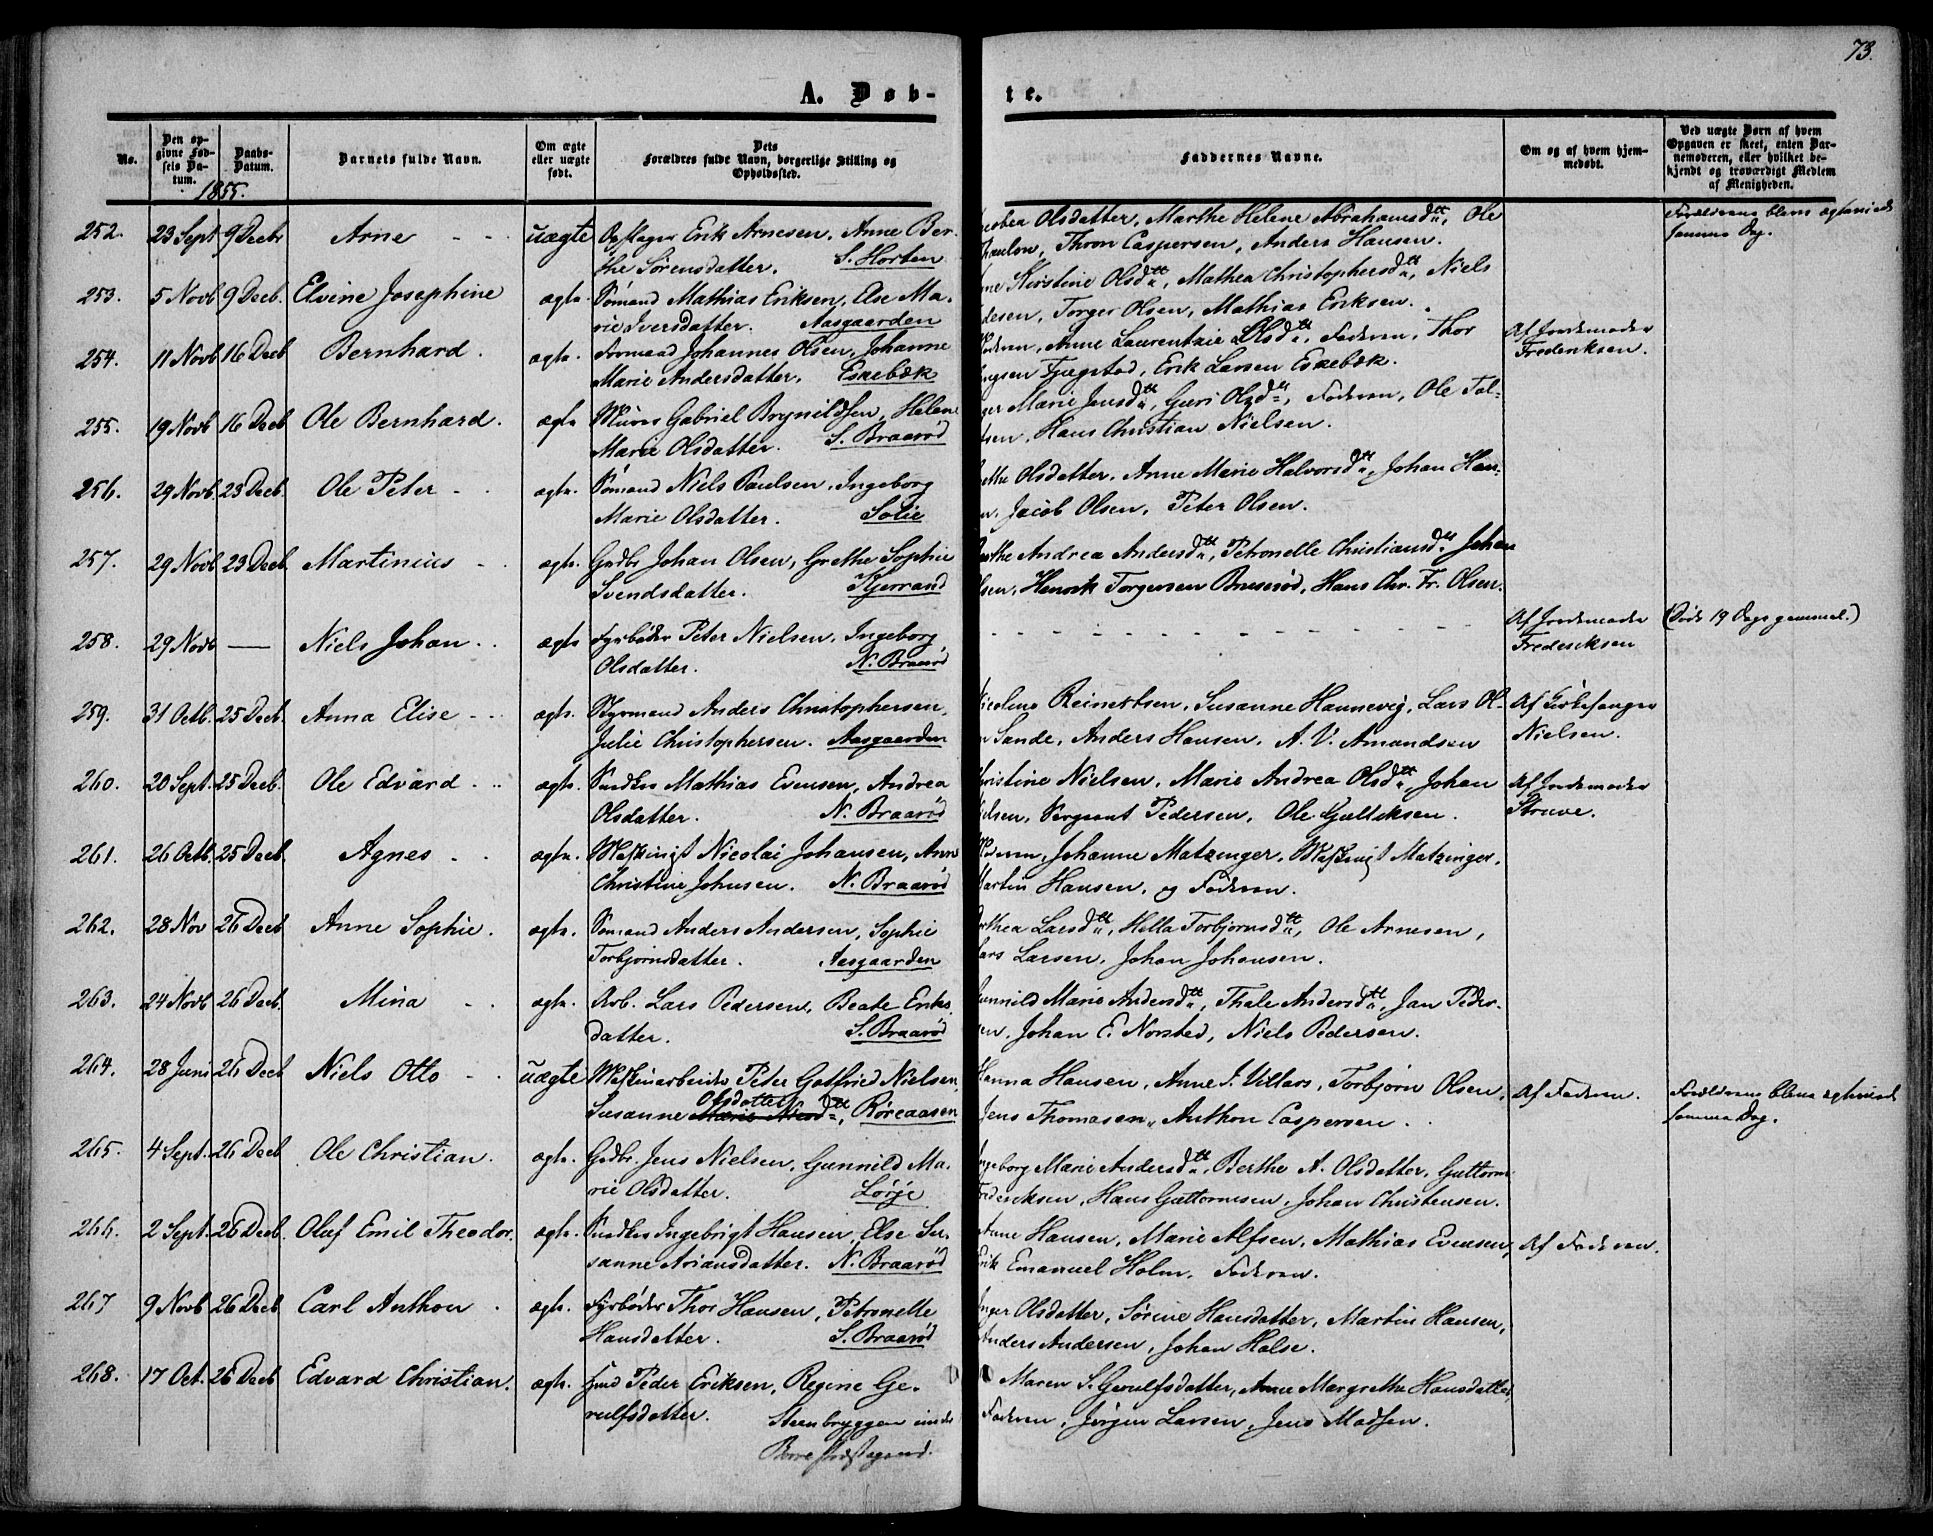 73.
A. Døb-
te.
No.
Den opgivne Fødsels Datum.
Daabs-Datum.
Barnets fulde Navn.
Om ægte eller uægte født.
Dets Forældres fulde Navn, borgerlige Stilling og Opholdssted.
Faddernes Navne.
Om og af hvem hjemmedøbt.
Ved uægte Børn af hvem Opgaven er skeet, enten Barnemoderen, eller hvilket bekjendt og troværdigt Medlem af Menigheden.
1855.
252. 23 Sept 9 Decbr Arne uægte Opslager Erik Arnesen, Anne Ber- Olsdatter, Marthe Helene Abrahamsdtt, Ole Forældrene bleve ægteviede
the Sørensdatter. S. Horten Thron Caspersen, Anders Hansen. samme Dag.
253. 5 Novb 9 Decb. Elvine Josephine ægte. Sømand Mathias Eriksen, Else Ma- Kirstine Olsdtt, Mathea Christophersdtt, Niels
rie Iversdatter. Aasgaarden Torger Olsen, Mathias Eriksen.
254. 11 Novb 16 Decb Bernhard. ægte. Formand Johannes Olsen, Johanne Anne Laurentzie Olsdtt, Faderen, Thor Af Jordemoder
Marie Andersdatter. Eskebæk Fjægstad, Erik Larsen Eskebæk. Frederiksen.
255. 19 Novb 16 Decb Ole Bernhard. ægte Murer Gabriel Brynildsen, Helene Marie Jensdtt, Guri Olsdtt, Faderen, Ole Tol-
Marie Olsdatter. S. Braarød Hans Christian Nielsen.
256. 29 Novb. 23 Decb. Ole Peter ægte. Sømand Niels Paulsen, Ingeborg Olsdatter, Anne Marie Halvorsdtt, Johan Han-
Marie Olsdatter. Solie Jacob Olsen, Peter Olsen.
257. 29 Novb 23 Decb. Martinius ægte. Gedbr Johan Olsen, Grethe Sophie Andrea Andersdtt, Petronelle Christiansdtt Johan
Svendsdatter. Kjerrand Henrik Torgersen Brusrød, Hans Chr. Fr. Olsen.
258. 29 Novb — Niels Johan ægte Fyrbøder Peter Nielsen, Ingeborg Af Jordemoder (Døde 19 Dage gammel.)
Olsdatter. N. Braarød Frederiksen
259. 31 Octb. 25 Decb. Anna Elise ægte. Styrmand Anders Christophersen, Nicoline Reinertsen, Susanne Hannevig, Lars Ol- Af Kirkesanger
Julie Christophersen. Aasgaarden Sande, Anders Hansen, A. V. Amundsen Nielsen.
260. 20 Sept. 25 Decb. Ole Edvard ægte. Snedker Mathias Evensen, Andrea Christine Nielsen, Marie Andrea Olsdtt, Johan Af Jordemoder
Olsdatter. N. Braarød Sergeant Pedersen, Ole Gulliksen. Struve.
261. 26 Octb. 25 Decb. Agnes ægte. Maskingt Nicolai Johansen, Anne Johanne Matzinger, Maskingt Matzinger,
Christine Johnsen. N. Braarød Martin Hansen, og Faderen.
262. 28 Nov 26 Decb Anne Sophie. ægte. Sømand Anders Andersen, Sophie Larsdtt, Hella Torbjørnsdtt, Ole Arnesen,
Torbjørnsdatter. Aasgaarden Lars Larsen, Johan Johansen.
263. 24 Novb 26 Decb. Mina ægte. Arb. Lars Pedersen, Beate Eriks- Gunnild Marie Andersdtt, Thale Andersdtt, Jan Peder-
datter. S. Braarød sen, Johan E. Norsted, Niels Pedersen.
264. 28 Juni 26 Decb Niels Otto uægte Maskinarbeider Peter Gotfried Nielsen, Hanna Hansen, Anne J. Villars, Torbjørn Olsen, Af Faderen. Forældrene bleve ægteviede
Susanne Olsdatter, Røreaasen Jens Thomasen, Anthon Caspersen. samme Dag.
265. 4 Sept. 26 Decb Ole Christian. ægte. Gedbr. Jens Nielsen, Gunnild Ma- Ingeborg Marie Andersdtt, Berthe A. Olsdatter, Guttorm
rie Olsdatter. Lørje Frederiksen, Hans Guttormsen, Johan Christensen.
266. 2 Sept. 26 Decb. Oluf Emil Theodor. ægte. Snedker Ingebrigt Hansen, Else Su- Anne Hansen, Marie Alfsen, Mathias Evensen, Af Faderen.
sanne Ariansdatter. N. Braarød Erik Emanuel Holm, Faderen.
267 9 Novb 26 Decb Carl Anthon. ægte. Fyrbøder Thor Hansen, Petronelle Inger Olsdatter, Sørine Hansdatter, Martin Hansen,
Hansdatter. S. Braarød Anders Andersen, Johan Halse.
268. 17 Oct. 26 Decb Edvard Christian. ægte. Peder Eriksen, Regine Ge- Maren S. Gerulfsdatter, Anne Margrethe Hansdatter,
rulfsdatter. Steenbryggen under Faderen, Jørgen Larsen, Jens Madsen.
Borre Præstegaard.